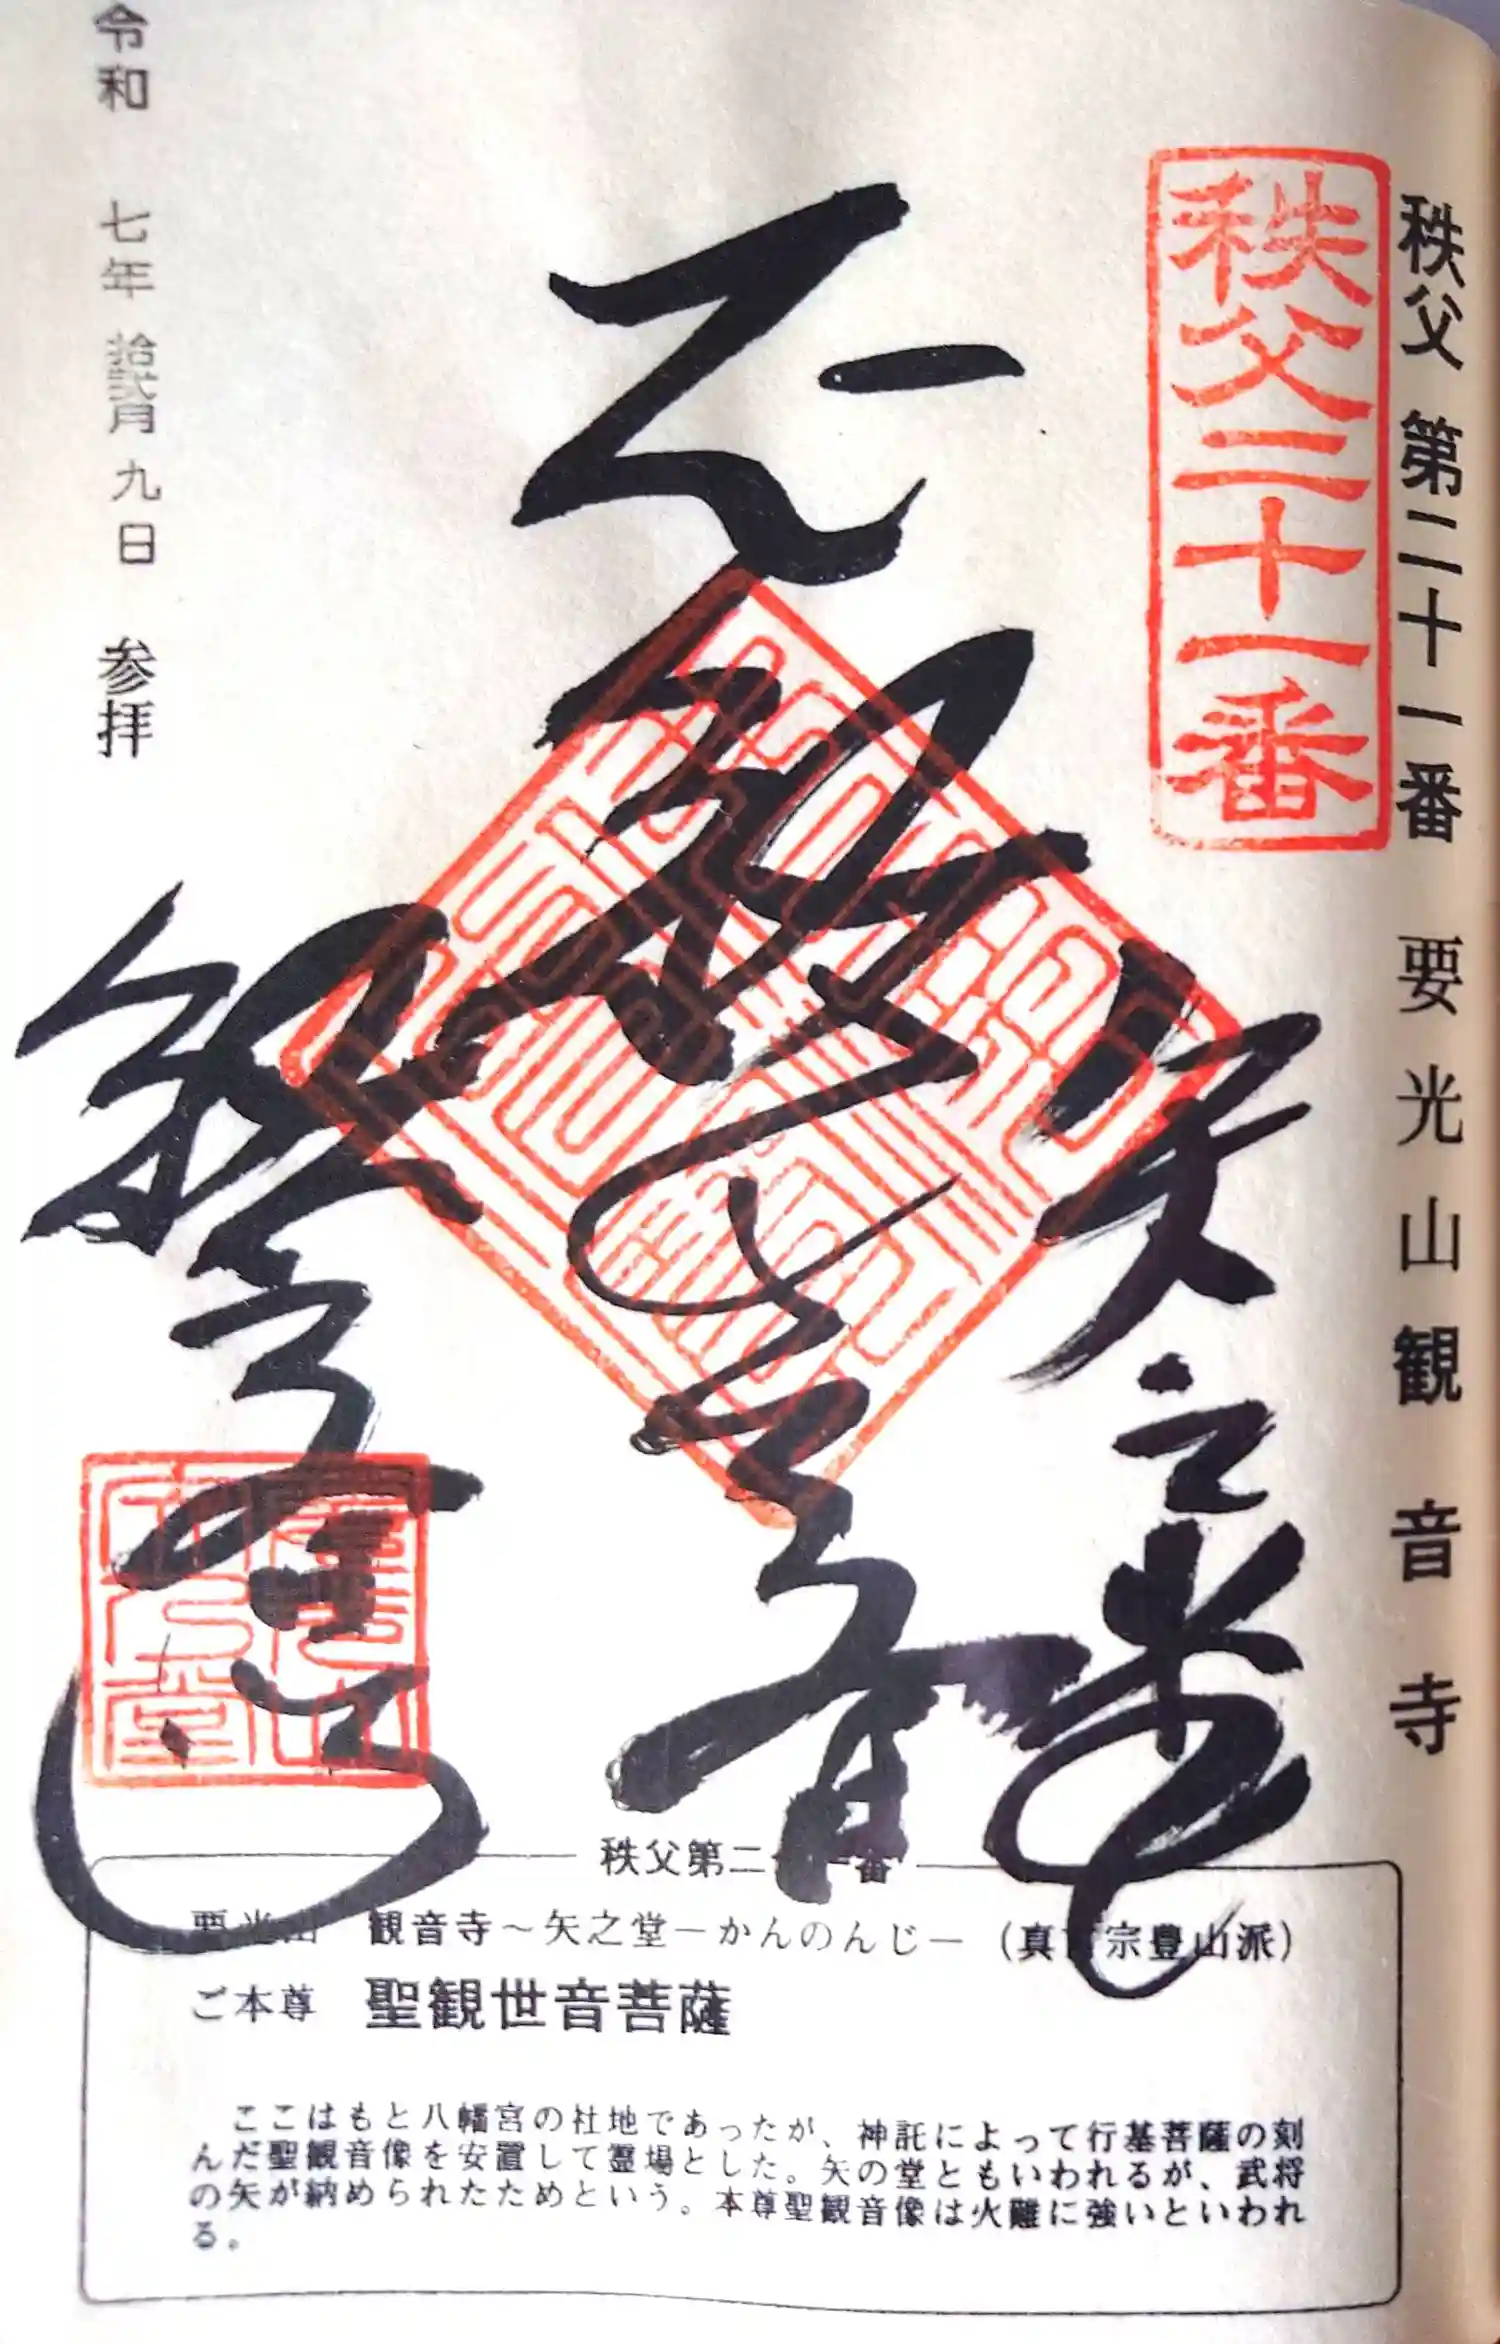 秩父 第二十一番 要光山観音寺
秩父二十一番
矢之堂
観音寺
令和 七年 拾弐月 九日 参拝
秩父第二十一番
要光山 観音寺～矢之堂－かんのんじ－（真言宗豊山派）
ご本尊 聖観世音菩薩
ここはもと八幡宮の社地であったが、神託によって行基菩薩の刻
んだ聖観音像を安置して霊場とした。矢の堂ともいわれるが、武将
の矢が納められたためという。本尊聖観音像は火難に強いといわれ
る。